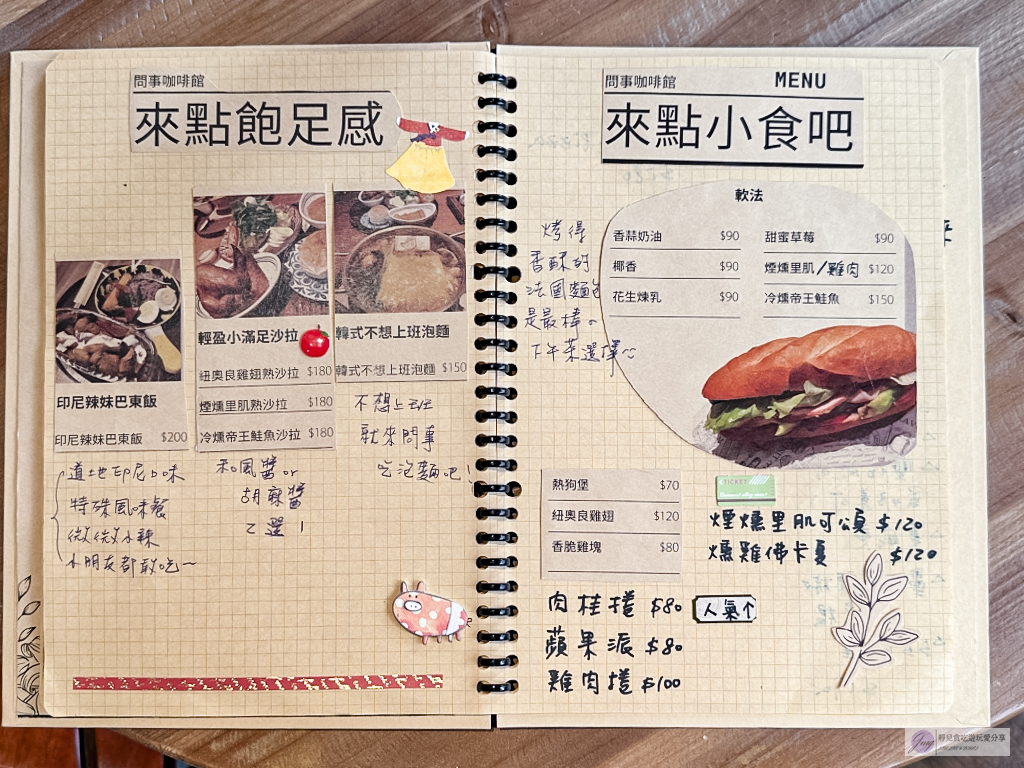 問事咖啡館
來點飽足感
印尼辣妹巴東飯
印尼辣妹巴東飯 $200
道地印尼口味
特殊風味餐
微微小辣
小朋友都敢吃~
輕盈小滿足沙拉
紐奧良雞翅熟沙拉 $180
煙燻里肌熟沙拉 $180
冷燻帝王鮭魚沙拉 $180
和風醬or
胡麻醬
2選1
韓式不想上班泡麵
韓式不想上班泡麵 $150
不想上班
就來問事
吃泡麵吧!
問事咖啡館 MENU
來點小食吧
烤得
香酥的
法國麵包
是最棒。
下午茶選擇~
軟法
香蒜奶油 $90
椰香 $90
花生煉乳 $90
甜蜜草莓 $90
煙燻里肌/雞肉 $120
冷燻帝王鮭魚 $150
熱狗堡 $70
紐奧良雞翅 $120
香脆雞塊 $80
TICKET
煙燻里肌可頌 $120
燻雞佛卡夏 $120
肉桂捲 $80 人氣个
蘋果派 $80
雞肉捲 $100
靜兒貪吃遊玩愛分享